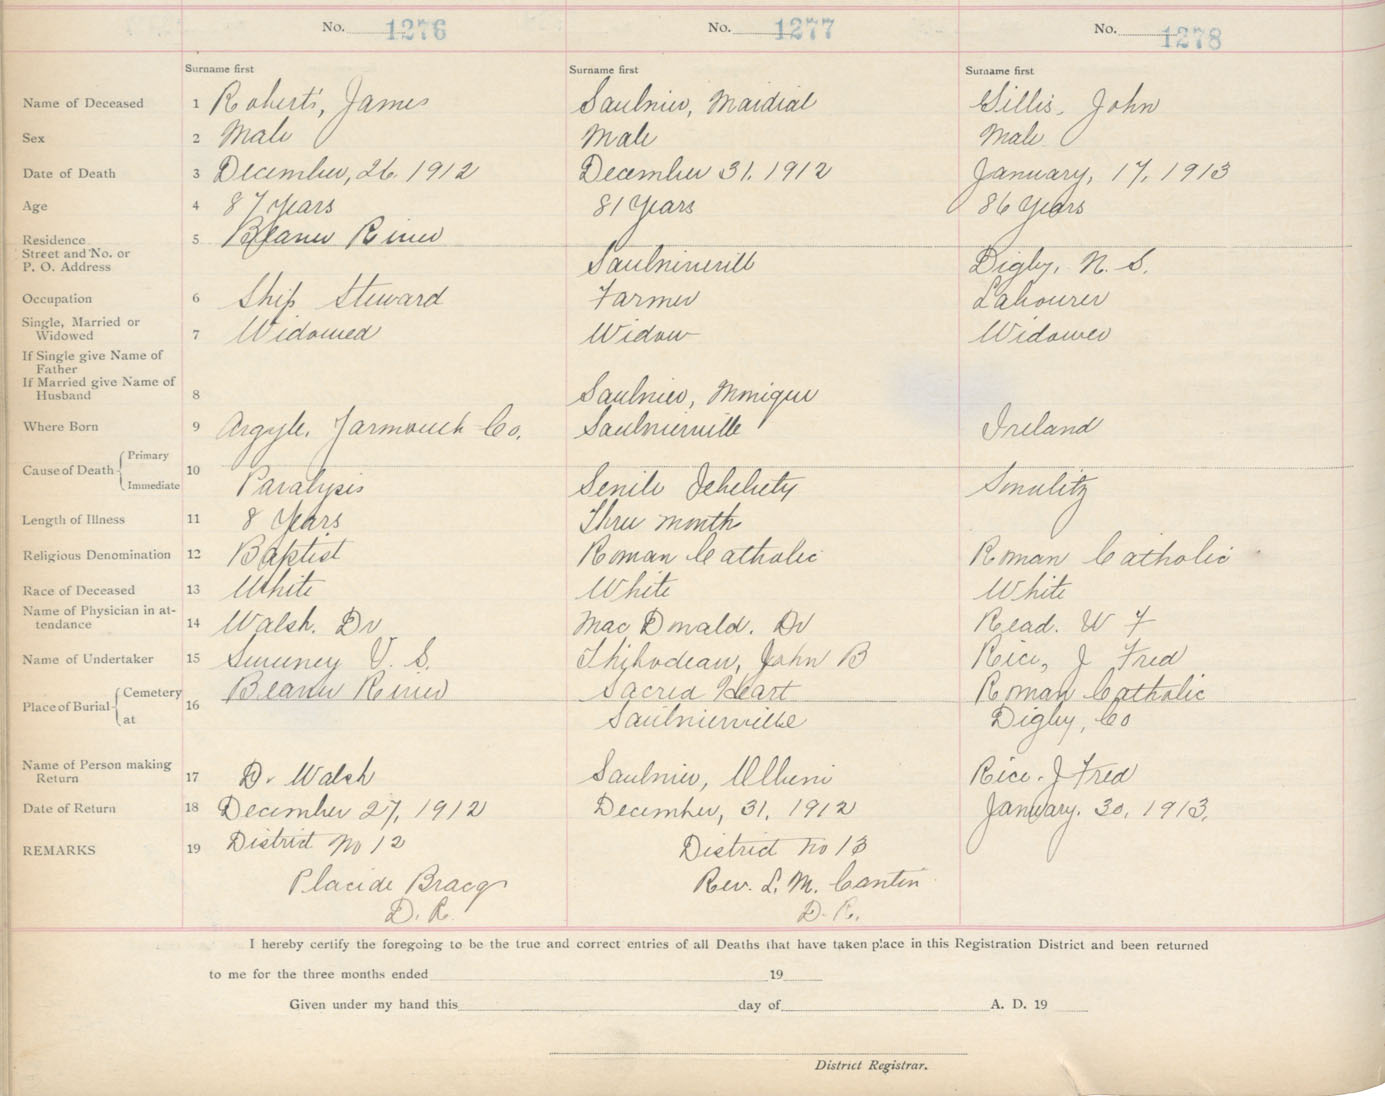 No. 1276 No. 1277 No. 1278
Surname first Surname first Surname first
Name of Deceased 1 Roberts, James Saulnier, Mardial Gillis, John
Sex 2 Male Male Male
Date of Death 3 December, 26, 1912 December 31, 1912 January, 17, 1913
Age 4 87 Years 81 Years 86 Years
Residence 5 Beaver River
Street and No. or
P. O. Address Saulnierville Digby, N. S.
Occupation 6 Ship Steward Farmer Labourer
Single, Married or
Widowed 7 Widowed Widow Widower
If Single give Name of
Father
If Married give Name of
Husband 8 Saulnier, Monique
Where Born 9 Argyle, Yarmouth Co. Saulnierville Ireland
Cause of Death Primary 10
Immediate Paralysis Senile Debility Senility
Length of Illness 11 8 Years Three month
Religious Denomination 12 Baptist Roman Catholic Roman Catholic
Race of Deceased 13 White White White
Name of Physician in at-
tendance 14 Walsh. Dr Mac Donald. Dr Read. W F
Name of Undertaker 15 Sweeney V. S. Thibodeau, John B Rice, J Fred
Place of Burial Cemetery 16 Beaver River Sacred Heart Roman Catholic
at Saulnierville Digby, Co
Name of Person making
Return 17 Dr Walsh Saulnier, Rice. J Fred
Date of Return 18 December 27, 1912 December, 31, 1912 January. 30, 1913.
REMARKS 19 District No 12 District No 13
Placide Rev. L. M. Contin
D. R. D. R.
I hereby certify the foregoing to be the true and correct entries of all Deaths that have taken place in this Registration District and been returned
to me for the three months ended 19
Given under my hand this day of A. D. 19
District Registrar.